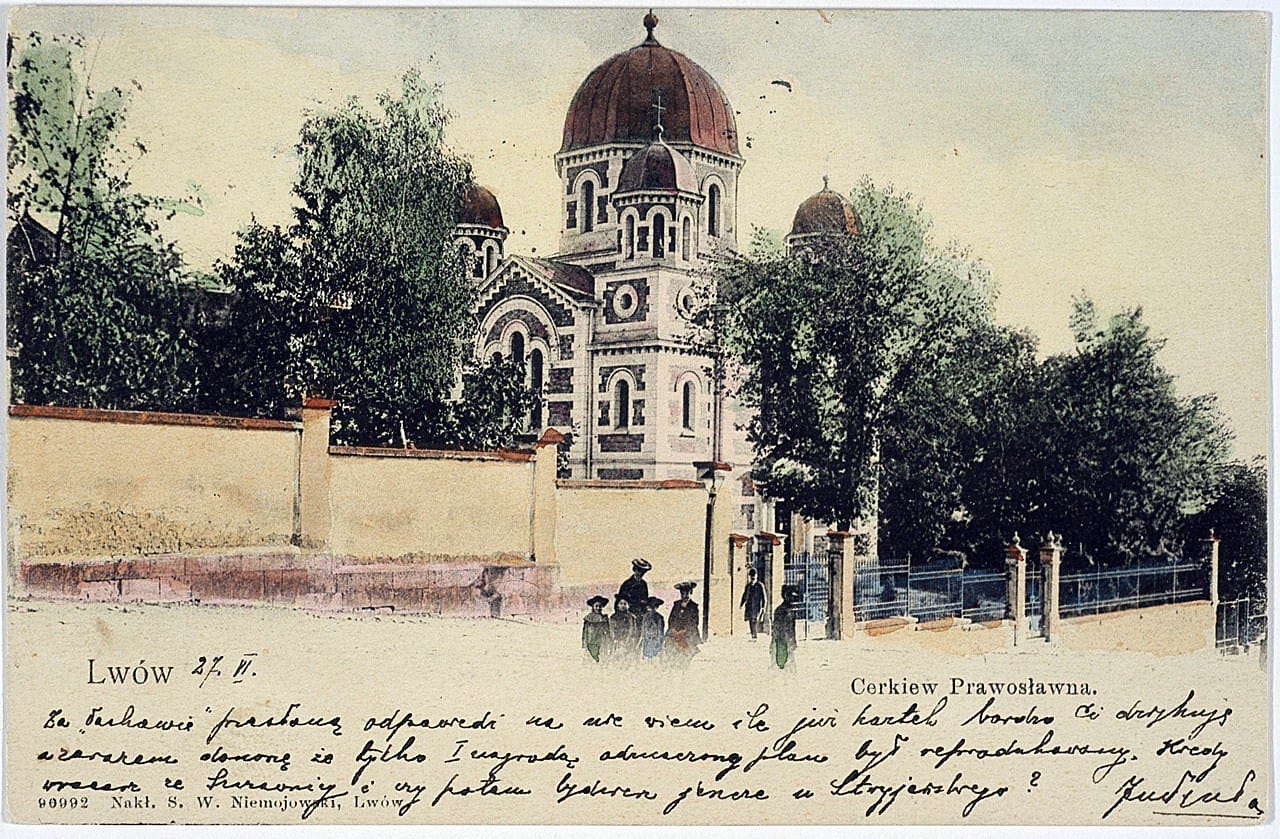 Lwów 27. VI.
Cerkiew Prawosławna.
Za "łaskawie" przesłaną odpowiedź na nie wiem ile już kartek bardzo Ci dziękuję
a zarazem donoszę że tylko I nagrodą odznaczony plan był reprodukowany. Kiedy
wracasz ze i czy potem będziesz jeszcze u Stryjeńskiego?
90992 Nakł. S. W. Niemojowski, Lwów